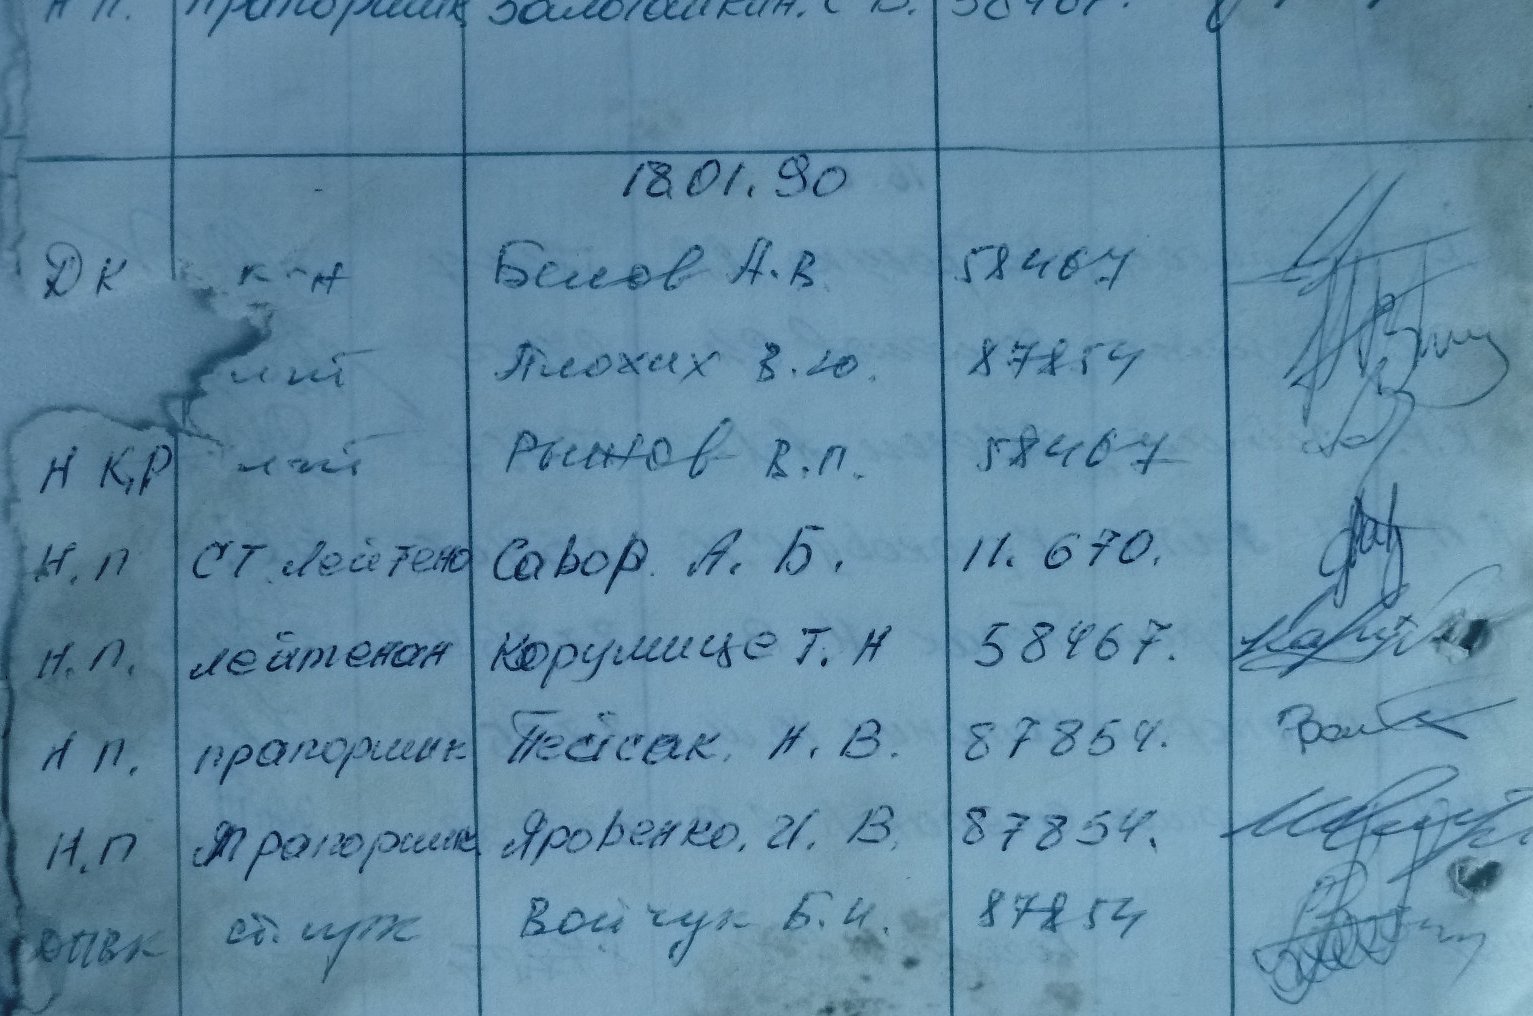 Н П. прапорщик 58467.
18.01.90
ДК к-н Белов А.В. 58467
л-т Плохих В.Ю. 87854
Н К,Р л-т Рыжов В.П. 58467
Н.П СТ. Лейтено Савор. А. Б. 11. 670.
Н.П. лейтенан Корумице Т. Н 58467.
Н П. прапорщик Пейсак. Н. В. 87854.
Н.П Прапорщик Яровенко. И. В. 87854.
ДПВК ст. Войчук Б.И. 87854